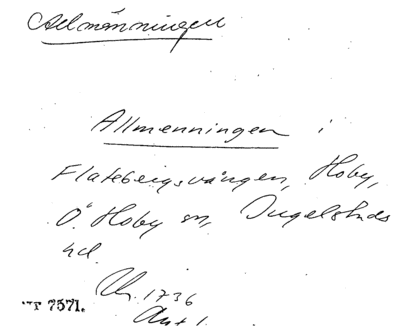 Allmänningen
Allmenningen i
Flatebergsvången, Hoby,
Ö. Hoby sn, Ingelstads
hd.
1736
Akt 1.
7571.